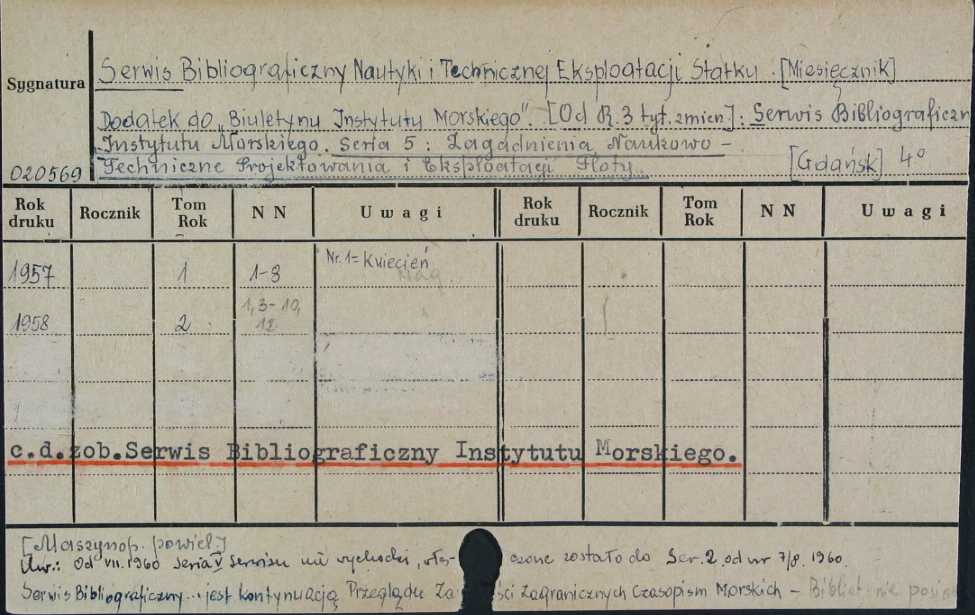 Serwis Bibliograficzny Nautyki i Technicznej Eksploatacji Statku. [Miesięcznik]
Sygnatura
Dodatek do „Biuletynu Instytutu Morskiego". [Od R. 3 tyt. zmien.]: Serwis Bibliograficzn
Instytutu Morskiego. Seria 5: Zagadnienia Naukowo-
020569 Techniczne Projektowania i Eksploatacji Floty. [Gdańsk] 4°
Rok druku Rocznik Tom Rok NN Uwagi Rok druku Rocznik Tom Rok NN Uwagi
1957 1 1-3 Nr. 1= Kwiecień
1958 2 1,3-10, 12
c.d.zob.Serwis Bibliograficzny Instytutu Morskiego.
[Maszynop. powiel.]
Uw.: Od VII.1960 seria V Serwisu nie wychodzi, czone zostało do Ser. 2 od nr 7/8. 1960.
Serwis Bibliograficzny... jest kontynuacją Przeglądu ści Zagranicznych Czasopism Morskich - Bibliot. nie posia